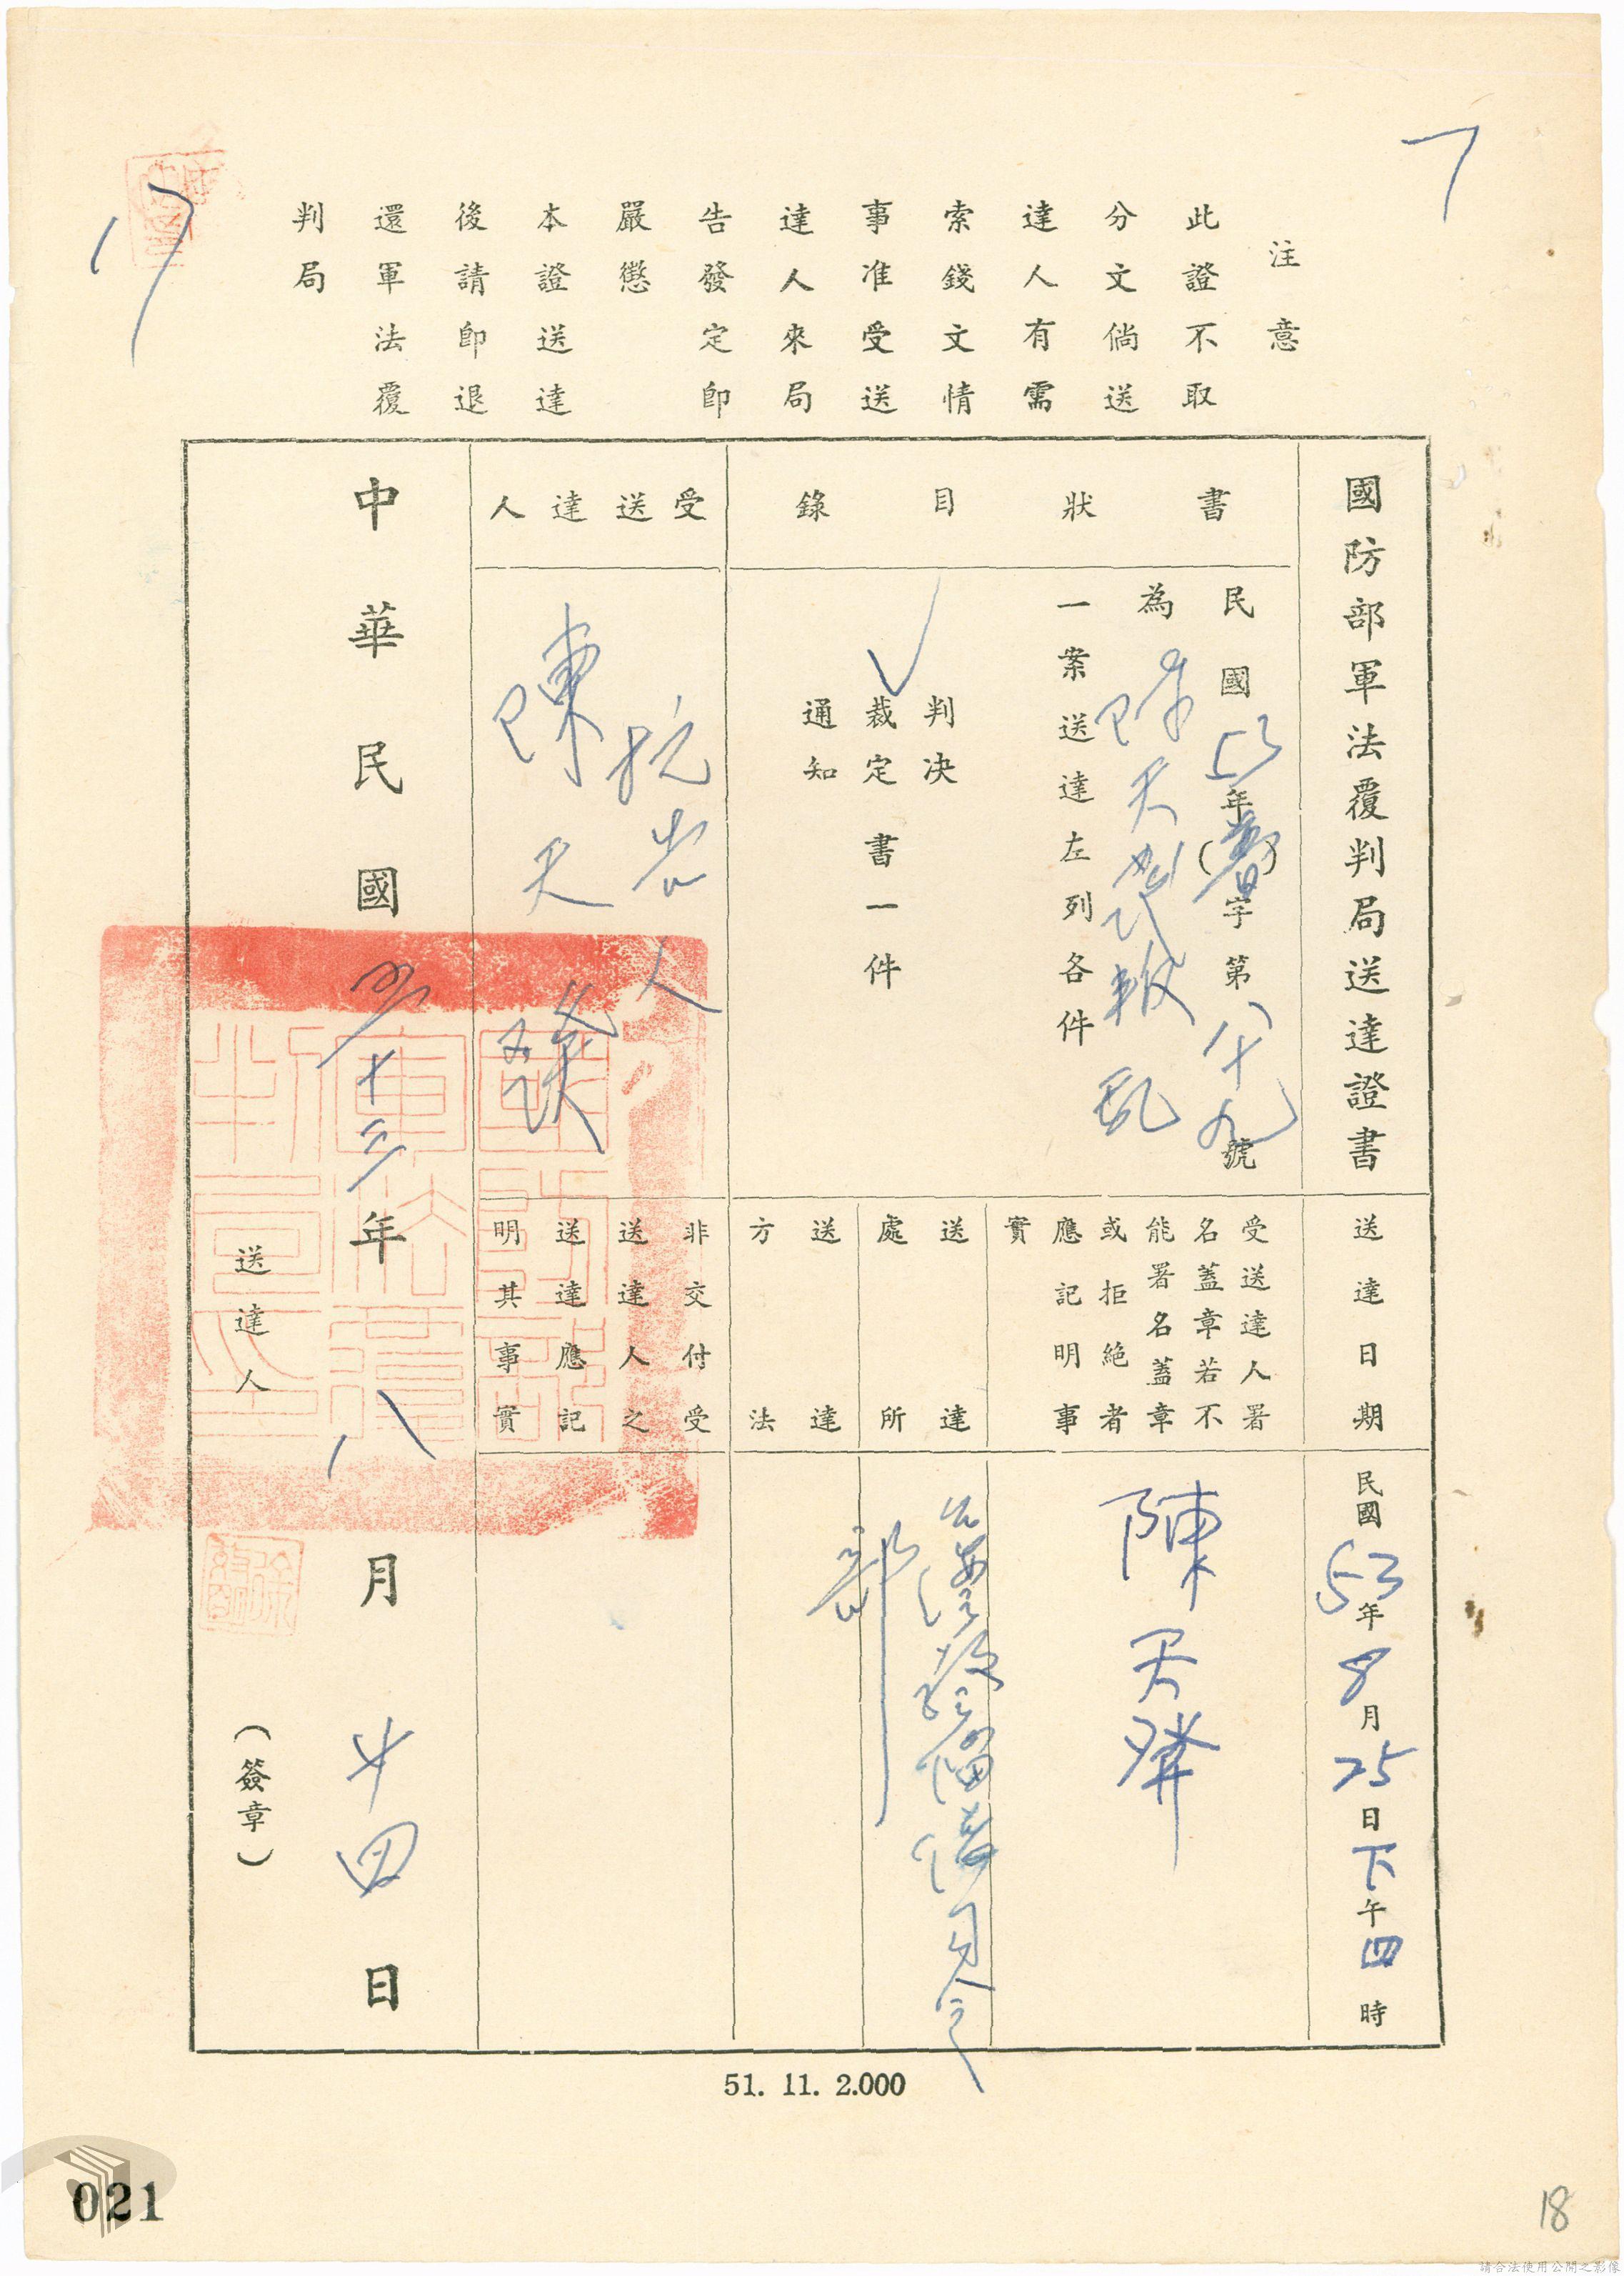 注意
此證不取
分文倘送
達人有需
索錢文情
事准受送
達人來局
告發定即
嚴懲
本證送達
後請即退
還軍法覆
判局
國防部軍法覆判局送達證書
書狀目錄
民國53年( )字第八十九號
為陳天發叛亂
一案送達左列各件
判決
裁定書一件
通知
受送達人
抗告人
陳天發
送達日期
民國53年8月25日下午四時
受送達人署
名蓋章若不
能署名蓋章
或拒絕者
應記明事
實
陳天發
送達
處所
台灣警備總司令
部
送達
方法
非交付受
送達人之
送達應記
明其事實
中華民國五十三年八月廿四日
送達人
(簽章)
51. 11. 2.000
021
18
請合法使用公開之影像